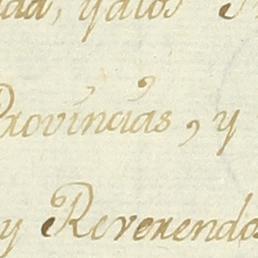 y alos
Provincias, y
y Reverendos